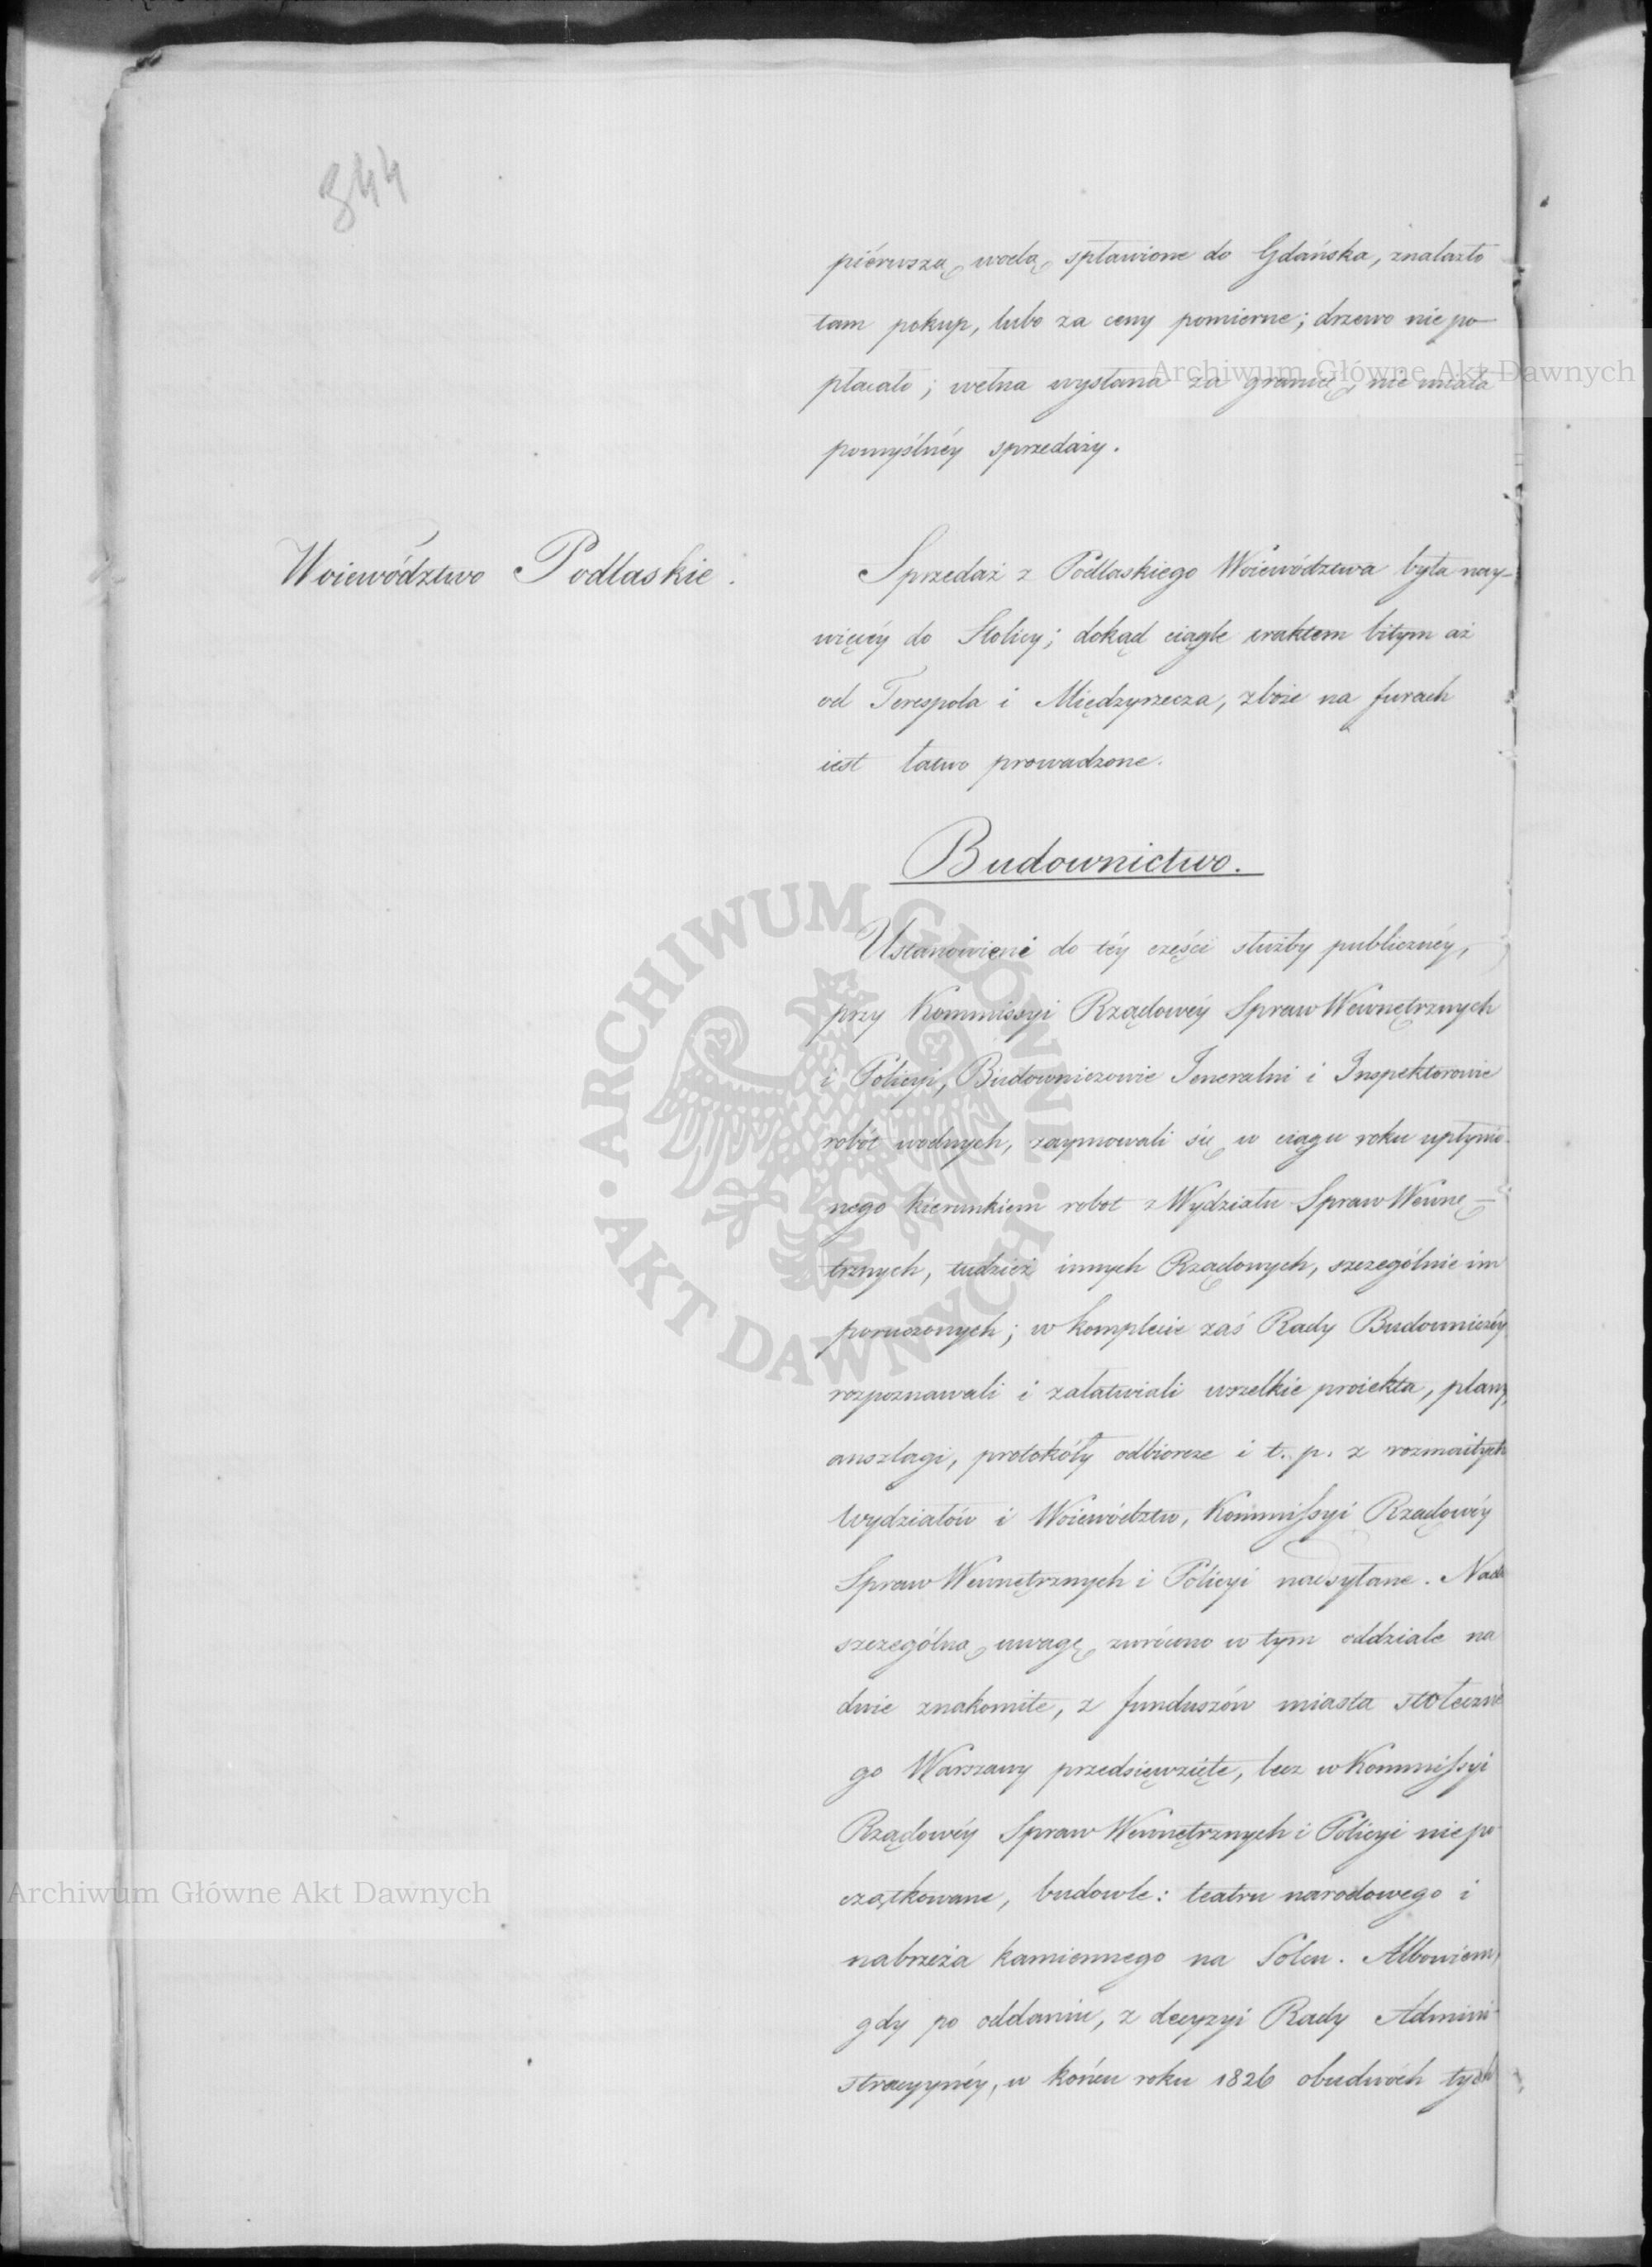 344
pierwszą wodą spławione do Gdańska, znalazło
tam pokup, lubo za ceny pomierne; drzewo nie po-
płacało; wełna wysłana za granicę, nie miała
pomyślnéy sprzedaży.
Woiewództwo Podlaskie.
Sprzedaż z Podlaskiego Woiewództwa była nay-
więcéy do Stolicy; dokąd ciągle traktem bitym aż
od Terespola i Międzyrzecza, zboże na furach
iest łatwo prowadzone.
Budownictwo.
Ustanowieni do téy części służby publicznéy,
przy Kommissyi Rządowéy Spraw Wewnętrznych
i Policyi, Budowniczowie Jeneralni i Inspektorowie
robót wodnych, zaymowali się w ciągu roku upłynio-
nego kierunkiem robot z Wydziału Spraw Wewnę-
trznych, tudzież innych Rządowych, szczególnie im
poruczonych; w komplecie zaś Rady Budowniczéy
rozpoznawali i załatwiali wszelkie proiekta, plany,
anszlagi, protokóły odbiorcze i t. p. z rozmaitych
Wydziałów i Woiewództw, Kommissyi Rządowéy
Spraw Wewnętrznych i Policyi nadsyłane.
szczególną uwagę zwrócono w tym oddziale na
dwie znakomite, z funduszów miasta stołeczne
go Warszawy przedsięwzięte, lecz w Kommissyi
Rządowéy Spraw Wewnętrznych i Policyi nie po-
czątkowane, budowle: teatru narodowego i
nabrzeża kamiennego na Solcu. Albowiem,
gdy po oddaniu, z decyzyi Rady Admini-
stracyynéy, w końcu roku 1826 obudwóch tych
Archiwum Główne Akt Dawnych
Archiwum Główne Akt Dawnych
ARCHIWUM GŁÓWNE · AKT DAWNYCH ·